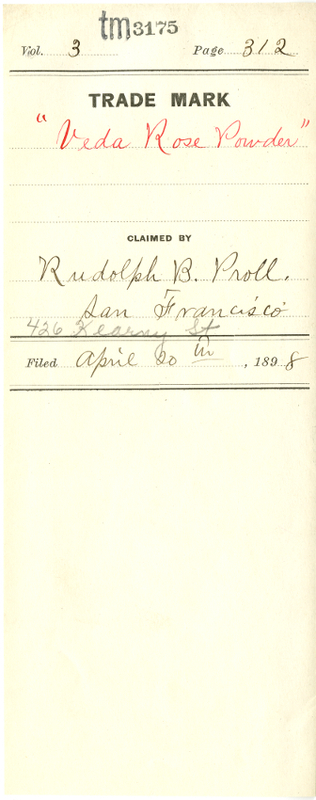 tm3175
Vol. 3 Page 312
TRADE MARK
"Veda Rose Powder"
CLAIMED BY
Rudolph B. Proll.
San Francisco
426 Kearny St
Filed April 20 th, 1898